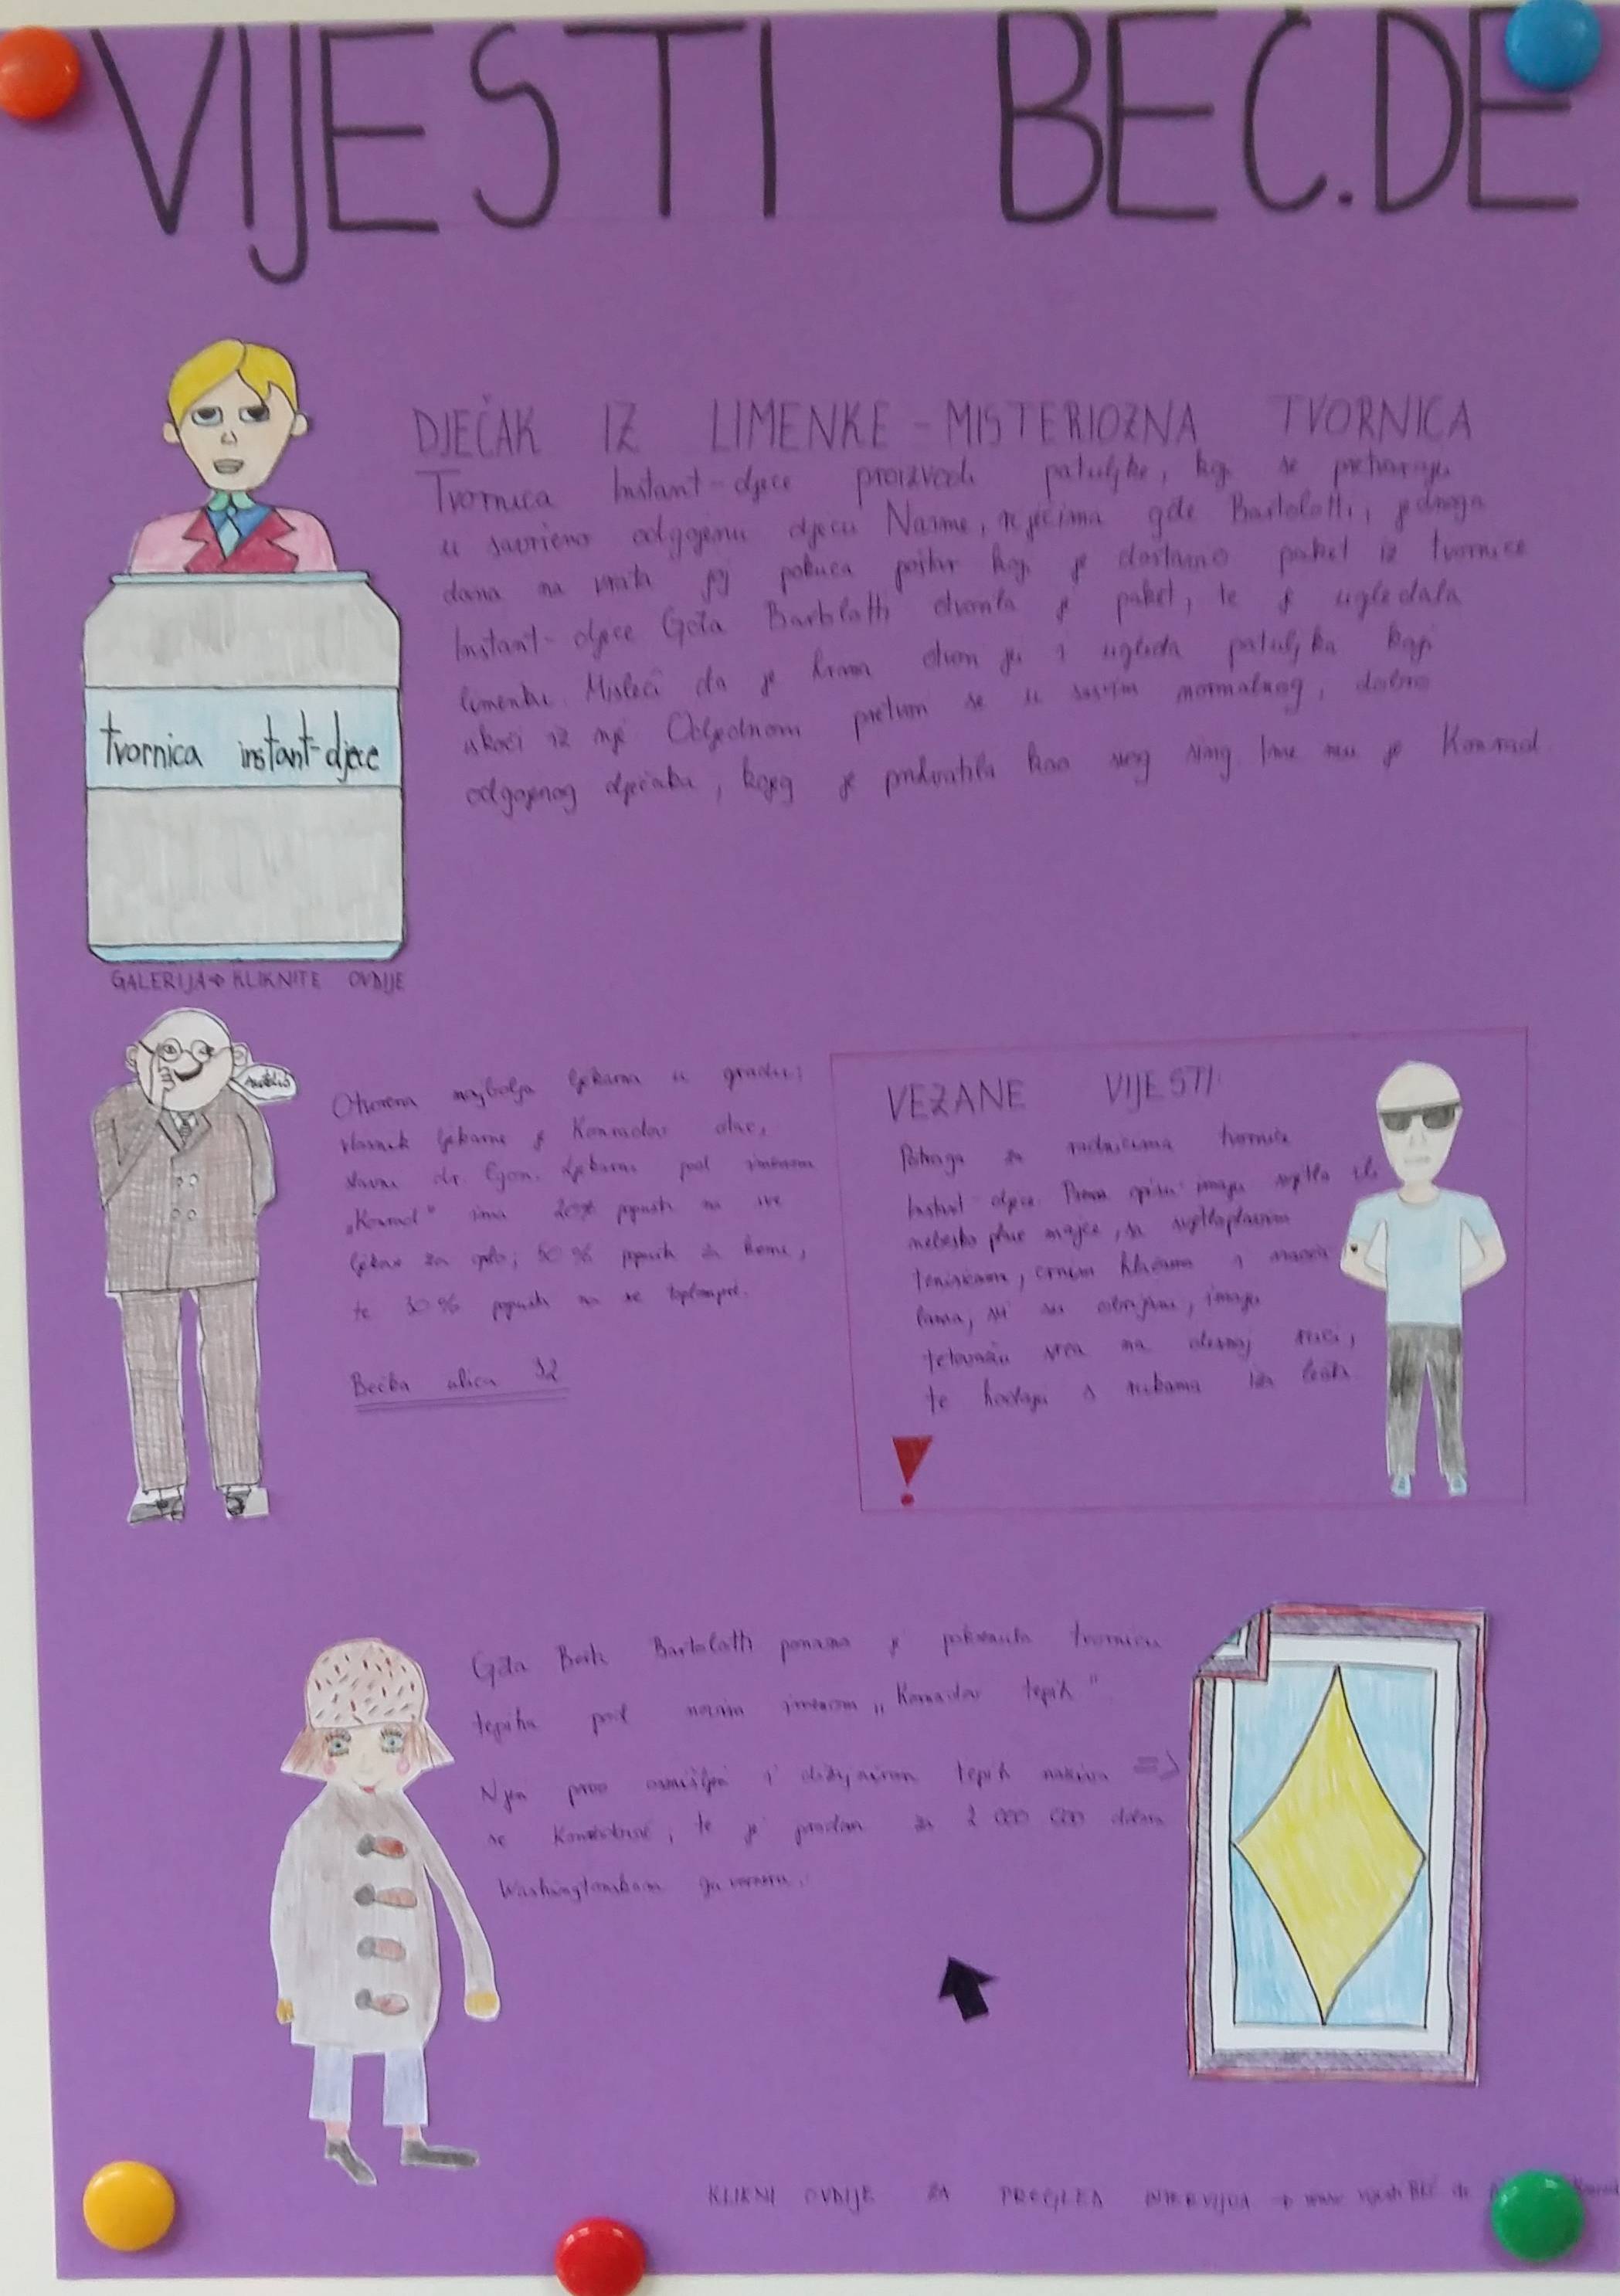 VIJESTI BEČ.DE
DJEČAK IZ LIMENKE - MISTERIOZNA TVORNICA
Tvornica Instant-djece proizvodi patuljke, koji se pretvaraju
u savršeno odgojenu djecu Naime, riječima gđe Bartolotti, jednoga
dana na vrata joj pokuca poštar koji je dostavio paket iz tvornice
Instant-djece Gđa Bartolotti otvorila je paket, te je ugledala
limenku. Misleći da je hrana otvori ju i ugleda patuljka koji
iskoči iz nje Odjednom pretvori se u sasvim normalnog, dobro
odgojenog dječaka, kojeg je prihvatila kao svog sinog. Ime mu je Konrad
tvornica instant-djece
GALERIJA → KLIKNITE OVDIJE
Otvorena najbolja ljekarna u gradu;
vlasnik ljekarne je Konradov otac,
slavni dr. Egon. Ljekarna pod imenom
„Konrad" ima 20% popusta na sve
ljekove za grlo, 50% popusta za kreme,
te 30% popusta na sve toplomjere.
Bečka ulica 32
VEZANE VIJESTI:
Potraga za radnicima tvornice
Instant-djece. Prema opisu imaju svjetlo ili
nebesko plave majce, sa svjetloplavim
tenisicama, crnim hlačama i naočalama, svi su obrijani, imaju
tetovažu srca na desnoj ruci,
te hodaju s rukama iza leđa
!
Gđa Berti Bartolotti ponovno je pokrenula tvornicu
tepiha pod novim imenom „Konradov tepih".
Njen prvo osmišljeni i dizajniran tepih naziva =>
se, te je prodan za 2 000 000 dolara
Washingtonskom guverneru.
KLIKNI OVDIJE ZA PREGLED INTERVJUA → www.vijesti BEČ.de